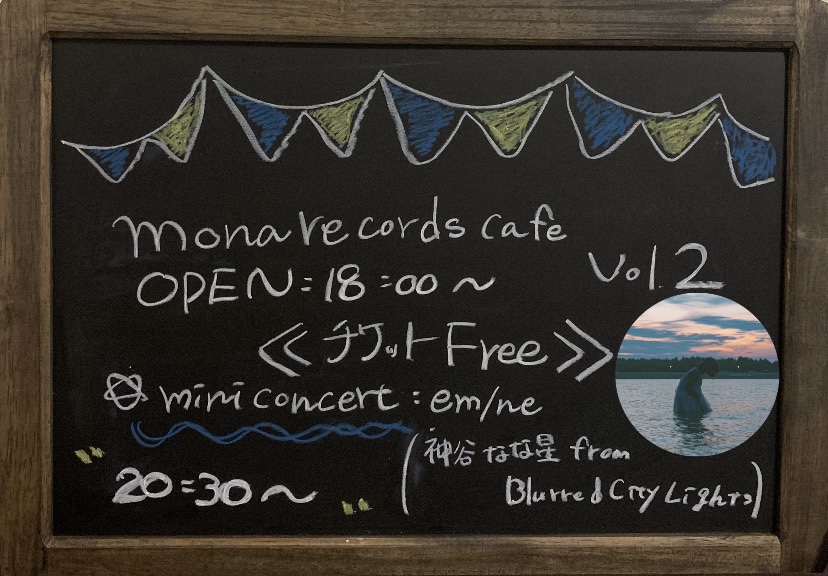 mona records cafe
OPEN=18=00~
Vol.2
≪チケットFree≫
mini concert:em/ne
(神谷なな星 from
Blurred City Lights)
20=30~